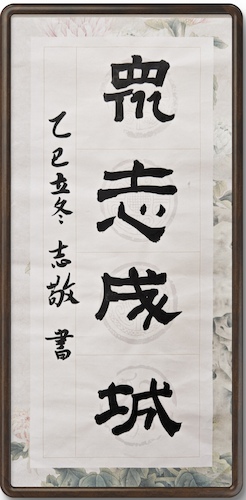 眾志成城
乙巳立冬 志敬 書